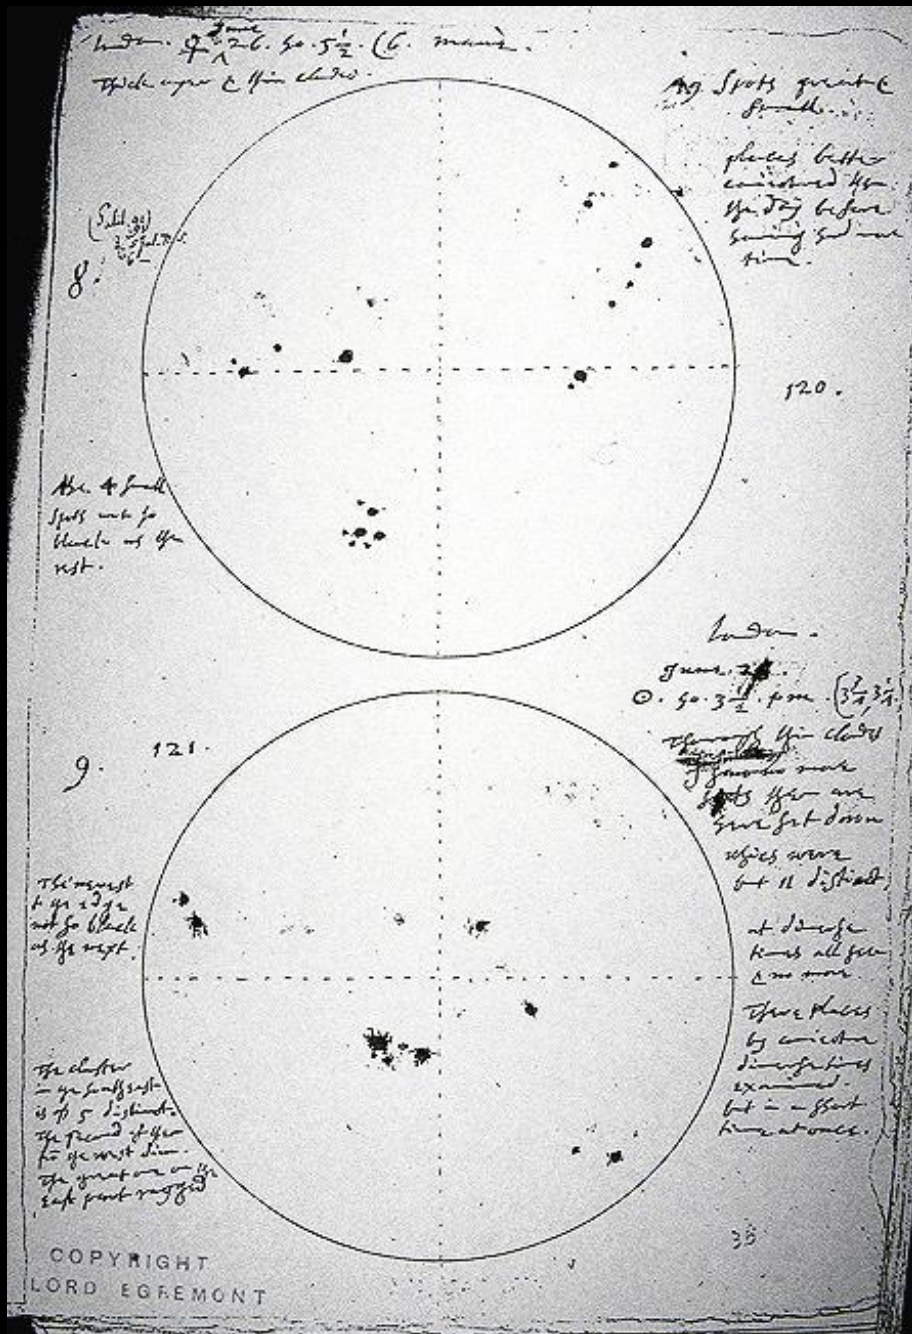 London. ♀ June 26. ho. 5½. (6. mane.
Thick ayer & thin cloudes.
19 Spots great &
small.
places better
considered then
the day before
having had more
time.
8.
120.
The 4 small
spots not so
black as the
rest.
London.
June. 28.
☉. ho. 3½. p m.
Through thin cloudes
more
spots then are
here set down
which were
but 11 distinct,
at diverse
times all seen
& no more.
These places
by
diverse times
examined.
but in a short
time at once.
9.
121.
The nearest
to ye edge
not so black
as the next.
The cluster
in ye southeast
is of 5 distinct.
The second of them
to the west dim.
The great one on the
East part ragged
38
COPYRIGHT
LORD EGREMONT